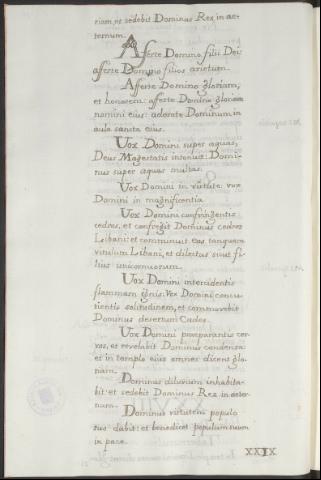 riam, et sedebit Dominus Rex in aet-
ternum.
Afferte Domino filii Dei:
afferte Domino filios arietum.
Afferte Domino gloriam,
et honorem: afferte Domino gloriam
nomini eius: adorate Dominum in
aula sancta eius.
Vox Domini super aquas,
Deus Magestatis intonuit: Domi-
nus super aquas multas.
Vox Domini in virtute: vox
Domini in magnificentia.
Vox Domini confringentis
cedros, et confregit Dominus cedros
Libani: et comminuit eas tanquam
vitulum Libani, et dilectus sicut fi-
lius unicornuorum.
Vox Domini intercidentis
flammam ignis: Vox Domini concu-
tientis solitudinem, et commovebit
Dominus desertum Cades.
Vox Domini praeparantis cer-
vos, et revelabit Dominus condensa:
et in templo eius omnes dicent glo-
riam.
Dominus diluvium inhabita-
bit: et sedebit Dominus Rex in aeter-
num.
Dominus virtutem populo
suo dabit: et benedicet populum suum
in pace.
XXIX